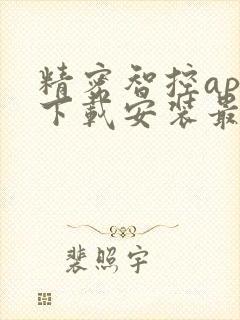 精密智控ap
下载安装最
裴照宇